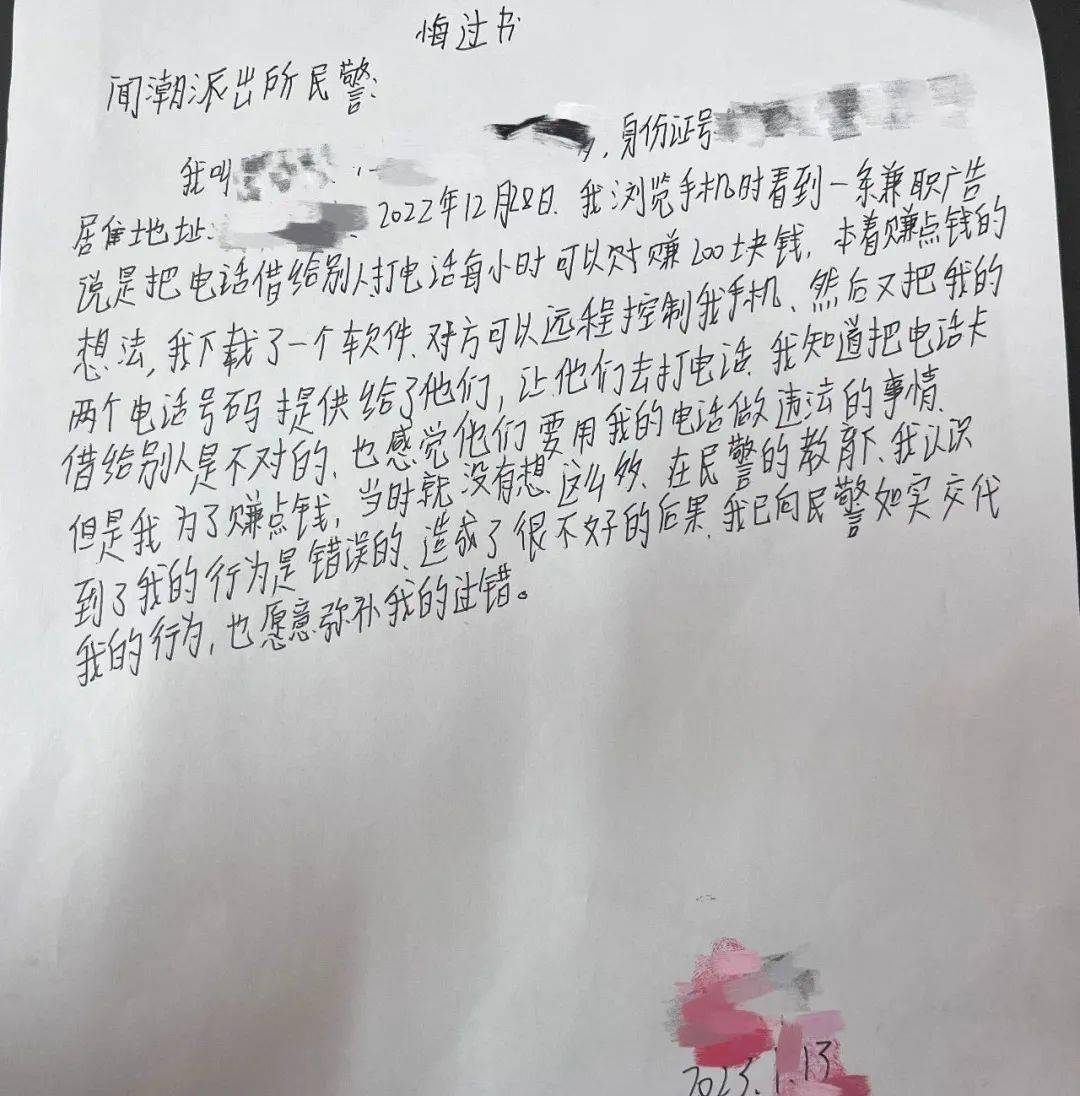 悔过书
闻潮派出所民警:
我叫 , 身份证号
居住地址: 2022年12月28日. 我浏览手机时看到一条兼职广告,
说是把电话借给别人打电话每小时可以 赚200块钱, 本着赚点钱的
想法, 我下载了一个软件. 对方可以远程控制我手机、然后又把我的
两个电话号码提供给了他们, 让他们去打电话. 我知道把电话卡
借给别人是不对的、也感觉他们要用我的电话做违法的事情.
但是我为了赚点钱, 当时就没有想这么多、在民警的教育下、我认识
到了我的行为是错误的、造成了很不好的后果. 我已向民警如实交代
我的行为, 也愿意弥补我的过错。
2023.1.13